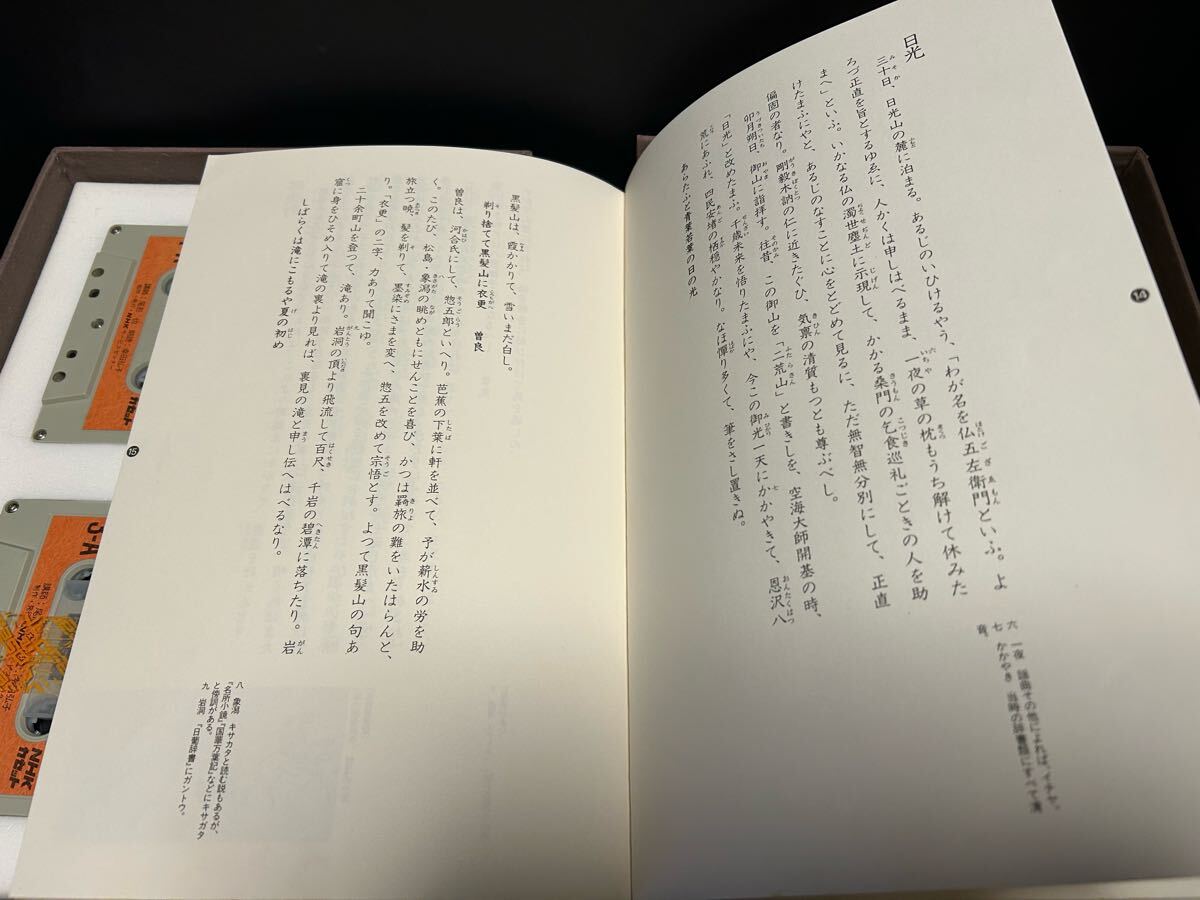 14
日光
三十日、日光山の麓に泊まる。あるじのいひけるやう、「わが名を仏五左衛門といふ。よ
ろづ正直を旨とするゆゑに、人かくは申しはべるまま、一夜の草の枕もうち解けて休みた
まへ」といふ。いかなる仏の濁世塵土に示現して、かかる桑門の乞食巡礼ごときの人を助
けたまふにやと、あるじのなすことに心をとどめて見るに、ただ無智無分別にして、正直
偏固の者なり。剛毅木訥の仁に近きたぐひ、気禀の清質もつとも尊ぶべし。
卯月朔日、御山に詣拝す。往昔、この御山を「二荒山」と書きしを、空海大師開基の時、
「日光」と改めたまふ。千歳未来を悟りたまふにや、今この御光一天にかかやきて、恩沢八
荒にあふれ、四民安堵の栖穏やかなり。なほ憚り多くて、筆をさし置きぬ。
あらたふと青葉若葉の日の光
六 一夜 謡曲その他によれば、イチヤ。
七 かかやき 当時の辞書類にすべて清
音。
黒髪山は、霞かかりて、雪いまだ白し。
剃り捨てて黒髪山に衣更 曽良
曽良は、河合氏にして、惣五郎といへり。芭蕉の下葉に軒を並べて、予が薪水の労を助
く。このたび、松島・象潟の眺めともにせんことを喜び、かつは羇旅の難をいたはらんと、
旅立つ暁、髪を剃りて、墨染にさまを変へ、惣五を改めて宗悟とす。よつて黒髪山の句あ
り。「衣更」の二字、力ありて聞こゆ。
二十余町山を登つて、滝あり。岩洞の頂より飛流して百尺、千岩の碧潭に落ちたり。岩
窟に身をひそめ入りて滝の裏より見れば、裏見の滝と申し伝へはべるなり。
しばらくは滝にこもるや夏の初め
八 象潟 キサカタと読む説もあるが、
『名所小鏡』『国華万葉記』などにキサガタ
と傍訓がある。
九 岩洞 『日葡辞書』にガントウ。
15
NHK
カセット
3-A
NHK
カセット